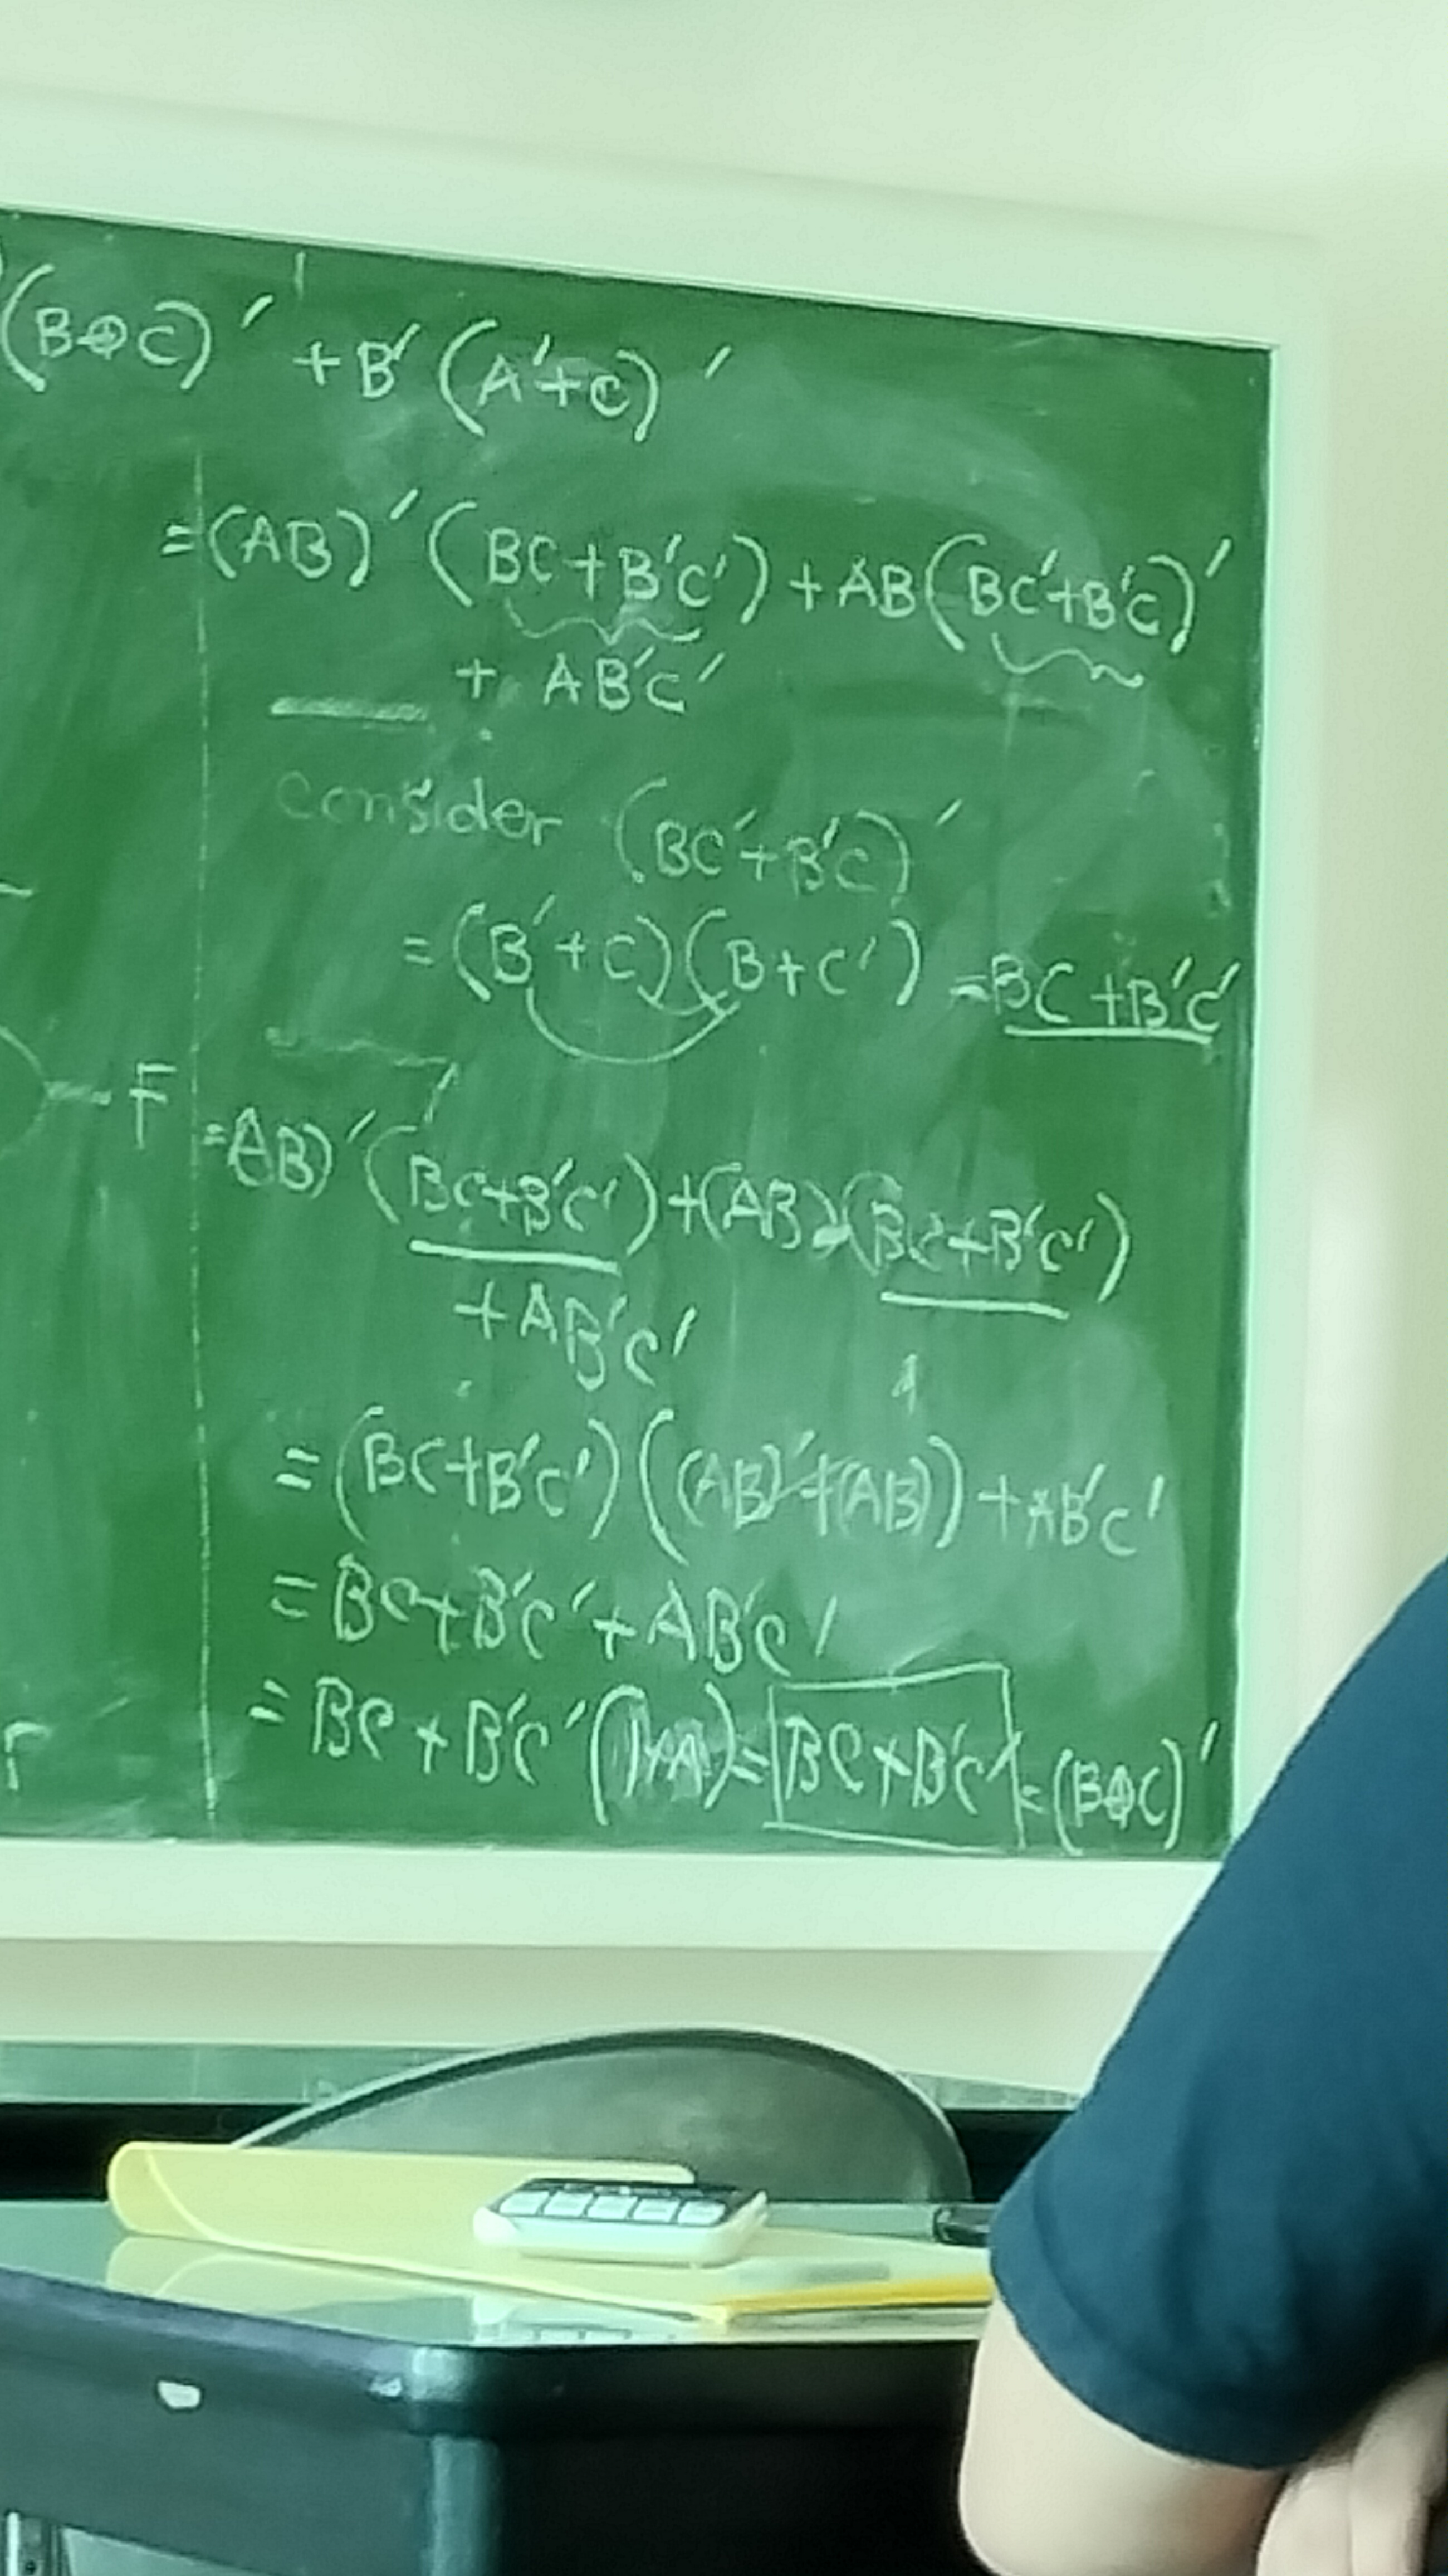 (B⊕C)' + B'(A'+C)'
=(AB)'(BC+B'C')+AB(BC'+B'C)'
+ AB'C'
consider (BC'+B'C)'
=(B'+C)(B+C') =BC+B'C'
F =AB)'(BC+B'C')+(AB)·(BC+B'C')
+AB'C'
1
=(BC+B'C')((AB)'+(AB))+AB'C'
=BC+B'C'+AB'C'
=BC+B'C'(1+A)=BC+B'C'=(B⊕C)'